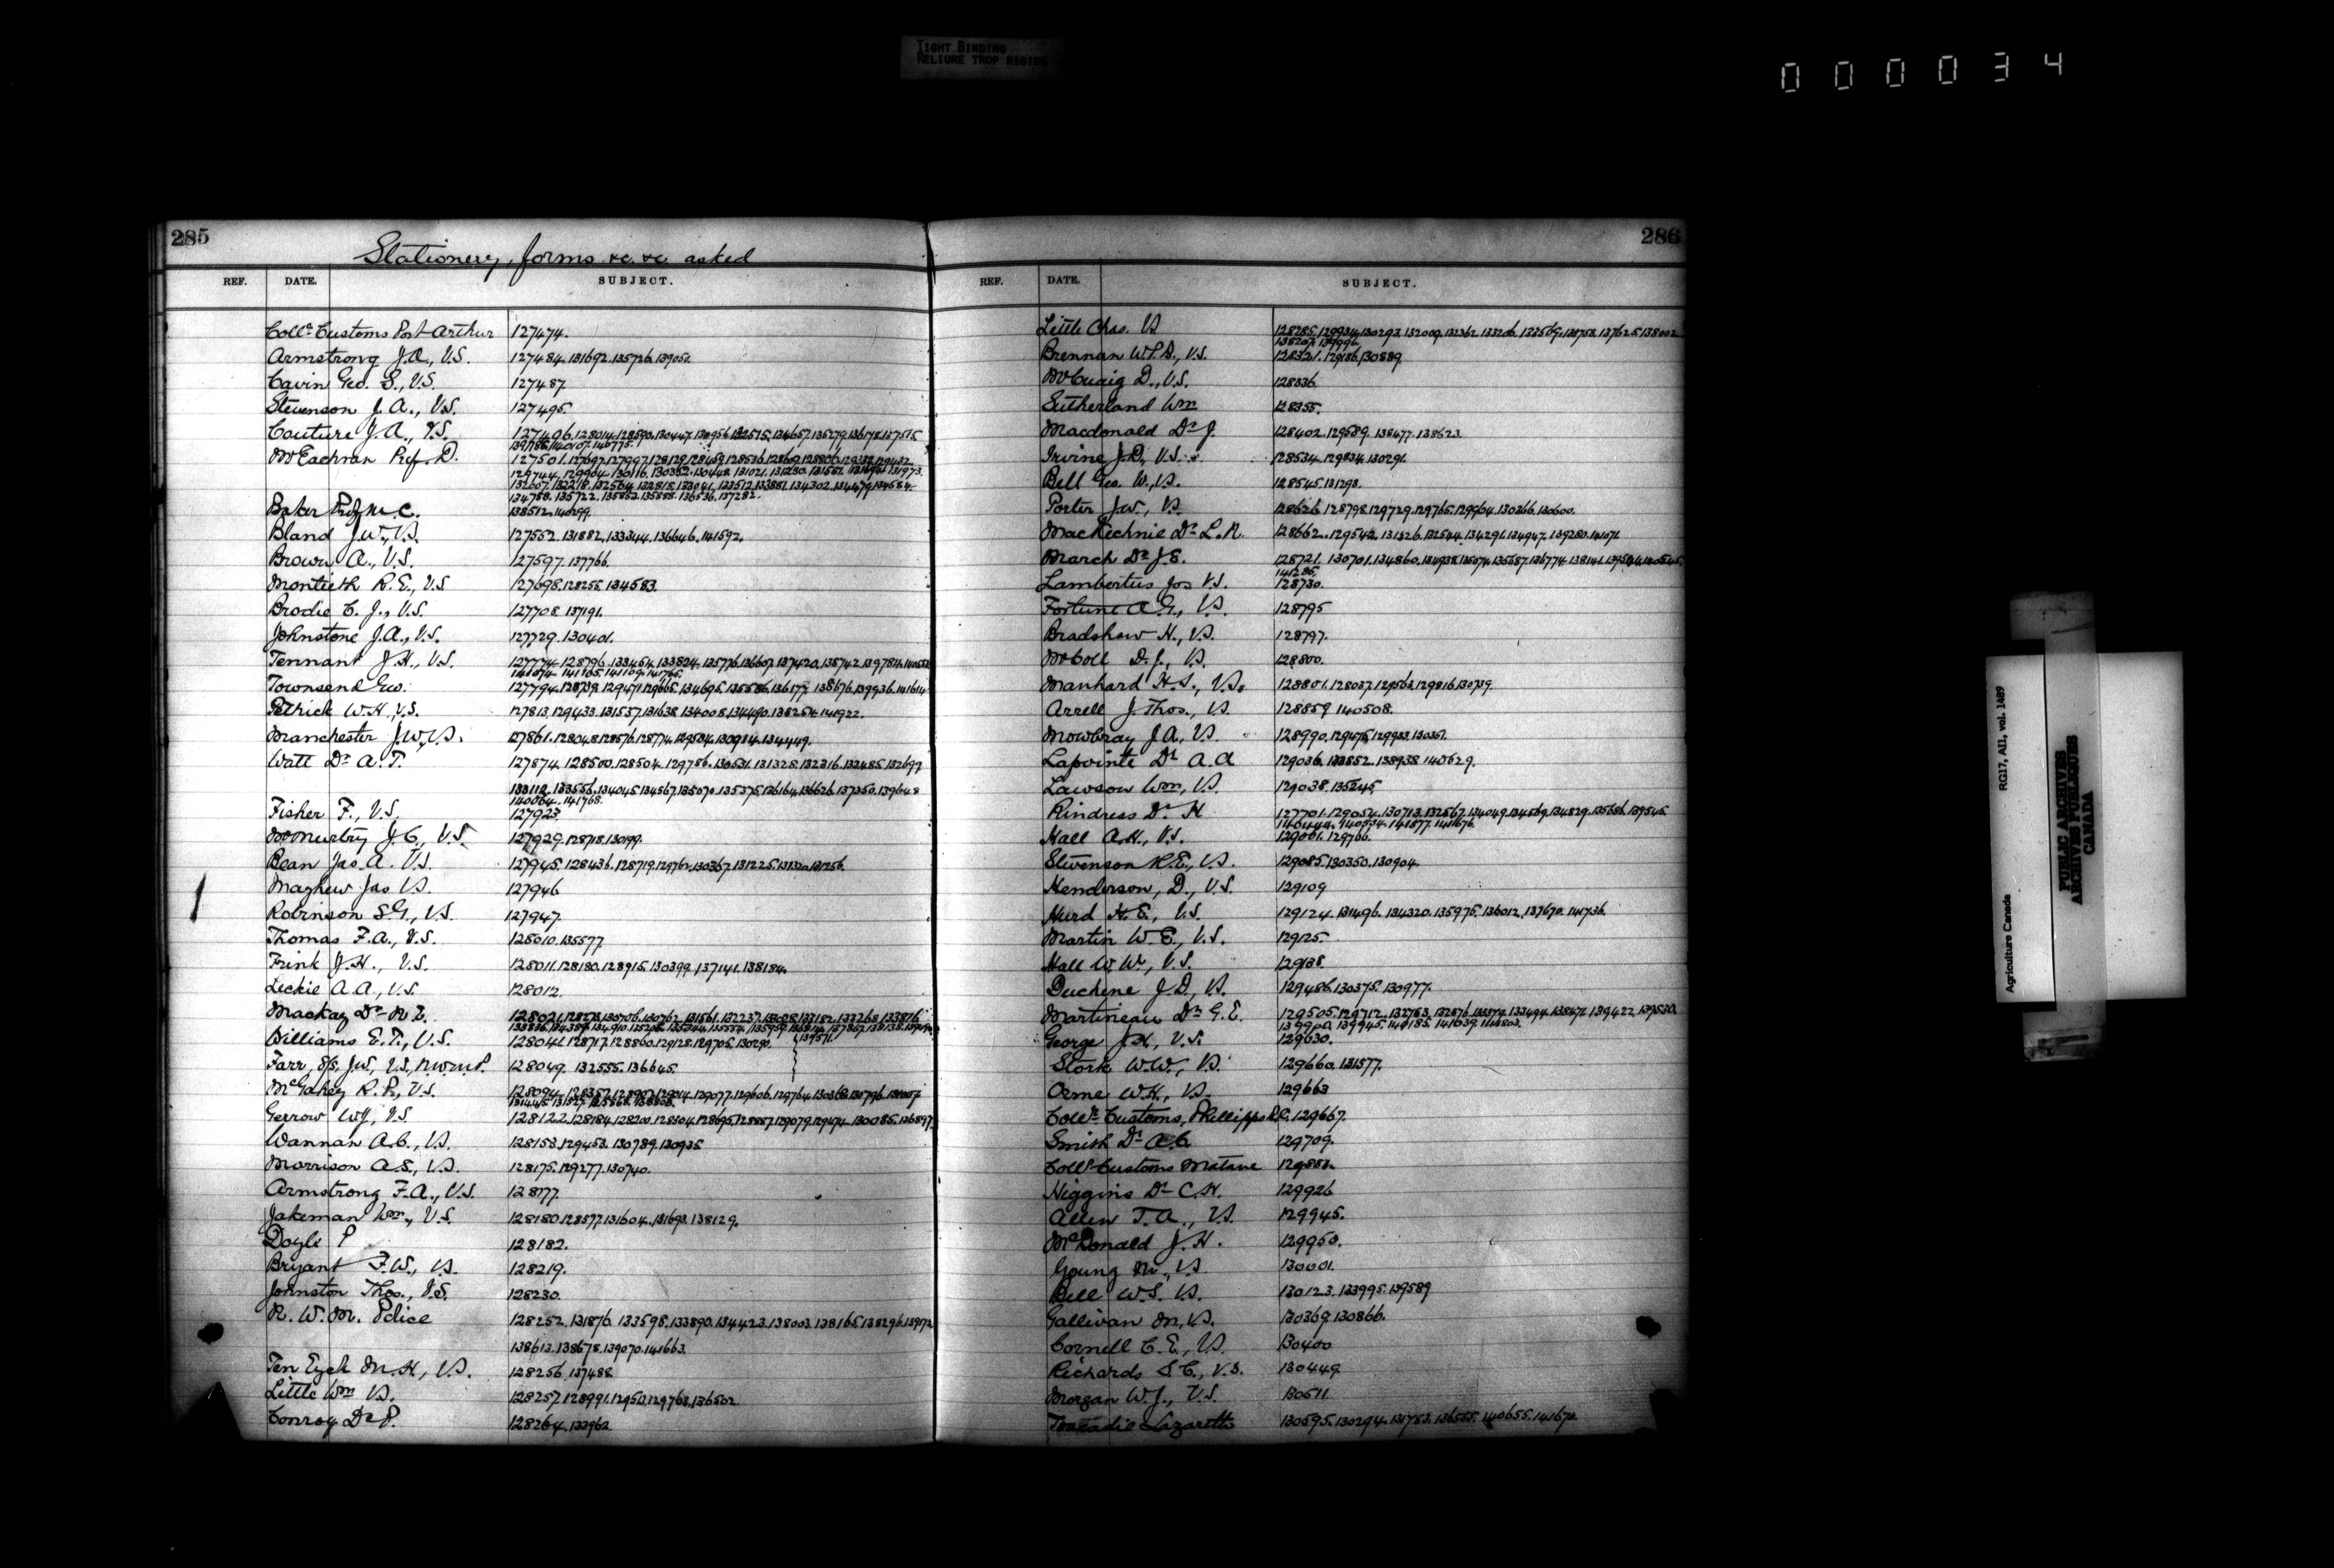 TIGHT BINDING
RELIURE TROP RIGIDE
000034
285
Stationery, forms &c. &c. asked
REF. DATE. SUBJECT.
Collr Customs Port Arthur 127474.
Armstrong J.A., V.S. 127484.131692.135726.139050.
Cavin Geo. S., V.S. 127487.
Stevenson J.A., V.S. 127495.
Couture J.A., V.S. 127496.128014.128590.130447.130956.132515.134657.135279.136178.137515
McEachran Prof. D.
134788.135722.135852.135888.136536.137282.
Baker Prof M.C. 138512.140299.
Bland J.W., V.S. 127552.131882.133344.136646.141592.
Brown A., V.S. 127597.137766.
Montieth R.E., V.S. 127698.128255.134583.
Brodie C.J., V.S. 127708.137191.
Johnstone J.A., V.S. 127729.130401.
Tennant J.H., V.S. 127774.128796.133464.133824.135776.136607.137420.138742.139781.
Townsend Geo. 127794.128739.129471.129665.134695.135586.136177.138676.139936.141614
Pethick W.H., V.S. 127813.129433.131537.131638.134008.134490.138254.148922.
Manchester J.W., V.S. 127861.128048.128576.128774.129534.130914.134449.
Watt Dr A.T. 127874.128500.128504.129786.130531.131328.132316.132485.132697
133112.133556.134045.134567.135070.135375.136164.136626.137350.139648
140064.141768.
Fisher F., V.S. 127923
McMurtry J.C., V.S. 127929.128718.130199.
Bean Jas. A. V.S. 127945.128436.128719.129762.130367.131225.
Mayhew Jas V.S. 127946
Robinson S.G., V.S. 127947.
Thomas F.A., V.S. 128010.135577
Frink J.H., V.S. 128011.128180.128915.130399.137141.138184.
Leckie A.A., V.S. 128012.
Mackay Dr N.E.
Williams E.T., V.S. 128041.128717.128860.129128.129705.130290. 139571.
Farr, S/S, J.W., V.S., N.W.M.P. 128049.132555.136645.
McGahey R.P., V.S.
Gerrow W.J., V.S. 128122.128184.128200.128304.128695.128887.129079.129474.130085.136897
Wannan A.C., V.S. 128153.129453.130789.130935.
Morrison A.S., V.S. 128175.129277.130740.
Armstrong F.A., V.S. 128177.
Jakeman Wm., V.S. 128180.128577.131604.131693.138129.
Doyle P 128182.
Bryant F.W., V.S. 128219.
Johnston Thos., V.S. 128230.
N.W.M. Police 128252.131876.133598.133890.134423.138003.138165.138296.
138613.138678.139070.141663.
Ten Eyck M.H., V.S. 128256.137488.
Little Wm V.S. 128257.128991.129510.129763.136502
Conroy Dr P. 128264.133962
286
REF. DATE. SUBJECT.
Little Chas. V.S.
Brennan W.P.B., V.S. 128321.129186.130889.
McCuaig D., V.S. 128336.
Sutherland Wm 128355.
Macdonald Dr J. 128402.129589.138477.138623.
Irvine J.D., V.S. 128534.129834.130291.
Bell Geo. W., V.S. 128545.131298.
Porter J.W., V.S. 128626.128798.129729.129765.129964.130366.130600.
MacKechnie Dr L.N. 128662.129542.131326.132544.134291.134947.139280.141071.
March Dr J.E. 128721.130701.134860.134938.135074.135687.136774.138141.
141286.
Lambertus Jos V.S. 128730.
Fortune A.G., V.S. 128795
Bradshaw H., V.S. 128797.
McColl D.J., V.S. 128800.
Manhard H.S., V.S. 128801.128037.129563.129816.130739.
Arrell J. Thos., V.S. 128859.140508.
Mowbray J.A., V.S. 128990.129675.129933.130351.
Lapointe Dr A.A 129036.133852.138938.140629.
Lawson Wm, V.S. 129038.135245.
Rindress Dr H 127701.129054.130713.132567.134049.134569.134829.135686.
Hall A.H., V.S. 129061.129766.
Stevenson R.E., V.S. 129085.130350.130904.
Henderson, D., V.S. 129109
Hurd H.E., V.S. 129124.131496.134320.135975.136012.137670.141736.
Martin W.E., V.S. 129125.
Hall W.W., V.S. 129138.
Duchene J.D., V.S. 129486.130375.130977.
Martineau Dr G.E. 129505.129712.132763.132876.133379.133494.138471.139422.139530.
George J.H., V.S. 129630.
Stork W.W., V.S. 129660.131577.
Orme W.H., V.S. 129663
Collr Customs, Phillipps P.Q. 129667.
Smith Dr A.C. 129709.
Collr Customs Matane 129882.
Higgins Dr C.H. 129926
Allen T.A., V.S. 129945.
McDonald J.H. 129950.
Young M., V.S 130001.
Bell W.S. V.S. 130123.133995.139589
Gallivan M., V.S. 130369.130866.
Cornell C.E., V.S. 130400
Richards S.C., V.S. 130449.
Morgan W.J., V.S. 130511.
Tracadie Lazaretto 130595.130294.131783.136555.140655.141670.
Agriculture Canada RG17, AII, vol. 1489
PUBLIC ARCHIVES
ARCHIVES PUBLIQUES
CANADA